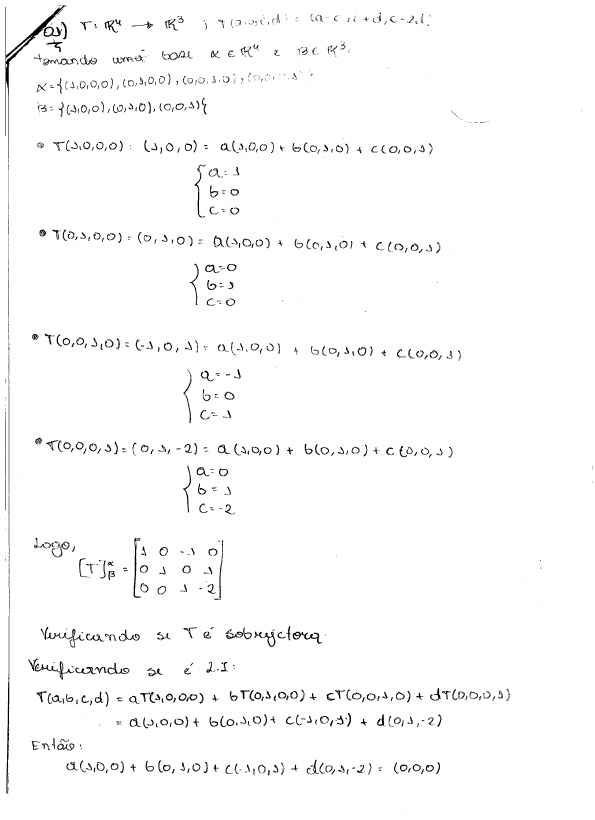 T: ℝ⁴ → ℝ³ ; T(a,b,c,d) = (a-c, b+d, c-2d)
tomando uma base α ∈ ℝ⁴ e β ∈ ℝ³.
α = {(1,0,0,0), (0,1,0,0), (0,0,1,0), (0,0,0,1)}
β = {(1,0,0), (0,1,0), (0,0,1)}
• T(1,0,0,0) : (1,0,0) = a(1,0,0) + b(0,1,0) + c(0,0,1)
a = 1
b = 0
c = 0
• T(0,1,0,0) = (0,1,0) = a(1,0,0) + b(0,1,0) + c(0,0,1)
a = 0
b = 1
c = 0
• T(0,0,1,0) = (-1,0,1) = a(1,0,0) + b(0,1,0) + c(0,0,1)
a = -1
b = 0
c = 1
• T(0,0,0,1) = (0,1,-2) = a(1,0,0) + b(0,1,0) + c(0,0,1)
a = 0
b = 1
c = -2
Logo,
[T]αβ = [1 0 -1 0
0 1 0 1
0 0 1 -2]
Verificando se T é sobrejetora.
Verificando se é L.I:
T(a,b,c,d) = aT(1,0,0,0) + bT(0,1,0,0) + cT(0,0,1,0) + dT(0,0,0,1)
= a(1,0,0) + b(0,1,0) + c(-1,0,1) + d(0,1,-2)
Então:
a(1,0,0) + b(0,1,0) + c(-1,0,1) + d(0,1,-2) = (0,0,0)